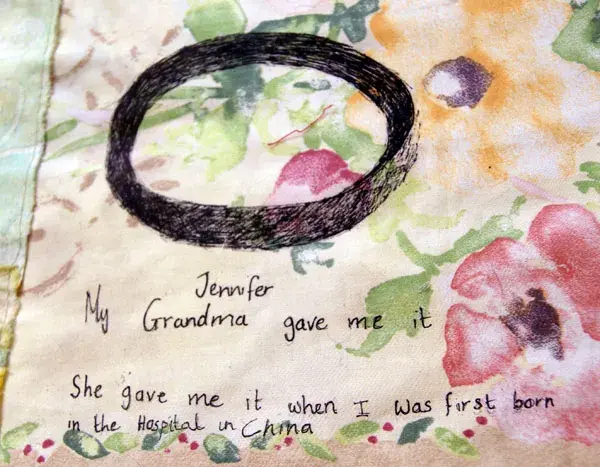 Jennifer
My Grandma gave me it
She gave me it when I was first born
in the Hospital in China